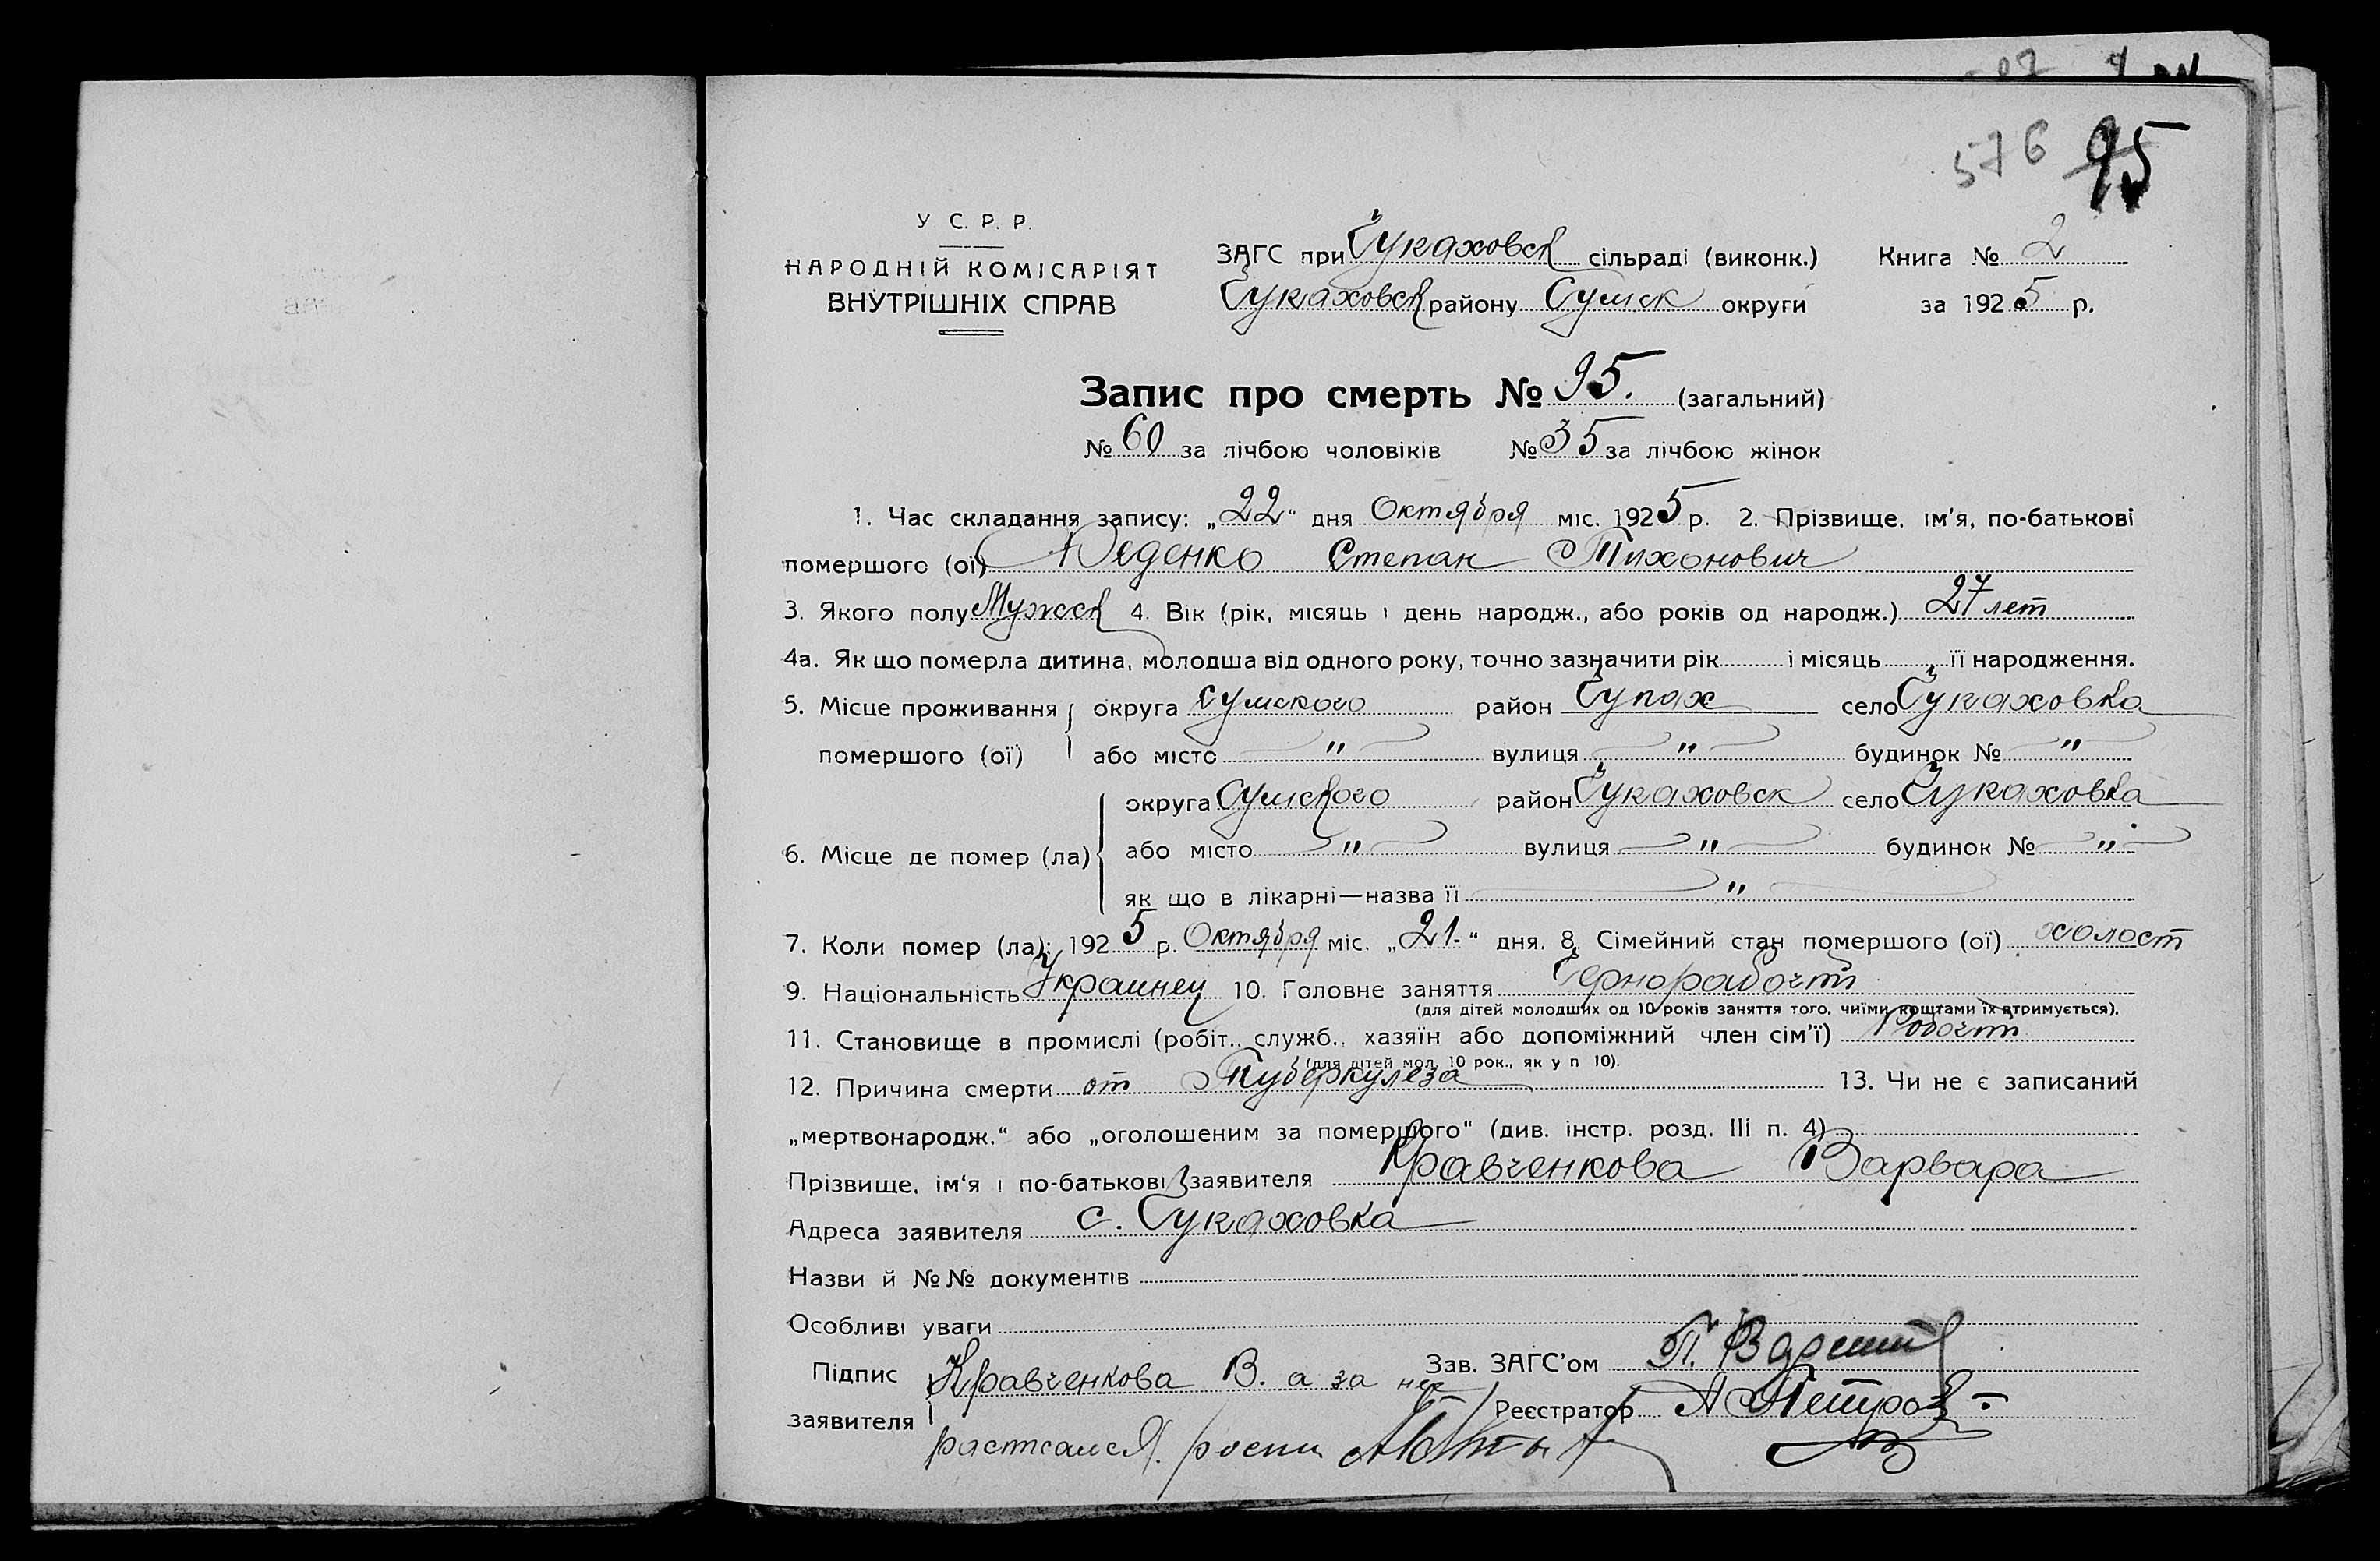 576 95
У С. Р. Р.
НАРОДНІЙ КОМІСАРІЯТ
ВНУТРІШНІХ СПРАВ
ЗАГС при Чупаховск сільраді (виконк.) Книга № 2
Чупаховск району Сумск округи за 1925 р.
Запис про смерть № 95. (загальний)
№ 60 за лічбою чоловіків № 35 за лічбою жінок
1. Час складання запису: „22“ дня Октября міс. 1925 р. 2. Прізвище, ім'я, по-батькові
помершого (ої) Степан Тихонович
3. Якого полу Мужск 4. Вік (рік, місяць і день народж., або років од народж.) 27 лет
4а. Як що померла дитина, молодша від одного року, точно зазначити рік і місяць її народження.
5. Місце проживання округа Сумского район Чупах село Чупаховка
помершого (ої) або місто " вулиця " будинок № "
округа Сумского район Чупаховск село Чупаховка
6. Місце де помер (ла) або місто " вулиця " будинок № "
як що в лікарні—назва її "
7. Коли помер (ла): 1925 р. Октября міс. „21.“ дня. 8. Сімейний стан помершого (ої) холост
9. Національність Украинец 10. Головне заняття Чернорабочий
(для дітей молодших од 10 років заняття того, чиїми коштами їх втримується).
11. Становище в промислі (робіт., служб., хазяїн або допоміжний член сім'ї) Рабочий
(для дітей мол. 10 рок., як у п 10).
12. Причина смерти от Туберкулеза 13. Чи не є записаний
„мертвонародж.“ або „оголошеним за помершого“ (див. інстр. розд. III п. 4)
Прізвище, ім'я і по-батькові заявителя Кравченкова Варвара
Адреса заявителя с. Чупаховка
Назви й №№ документів
Особливі уваги
Підпис Кравченкова В. а за нее Зав. ЗАГС'ом П.
заявителя Реєстратор А Петров